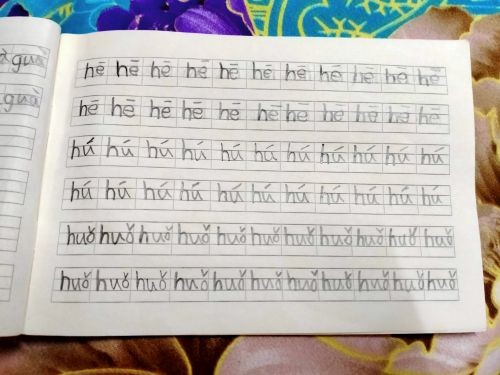 guà
guà
hē hē hē hē hē hē hē hē hē hē hē
hē hē hē hē hē hē hē hē hē hē hē
hú hú hú hú hú hú hú hú hú hú hú
hú hú hú hú hú hú hú hú hú hú hú
huǒ huǒ huǒ huǒ huǒ huǒ huǒ huǒ huǒ huǒ huǒ
huǒ huǒ huǒ huǒ huǒ huǒ huǒ huǒ huǒ huǒ huǒ